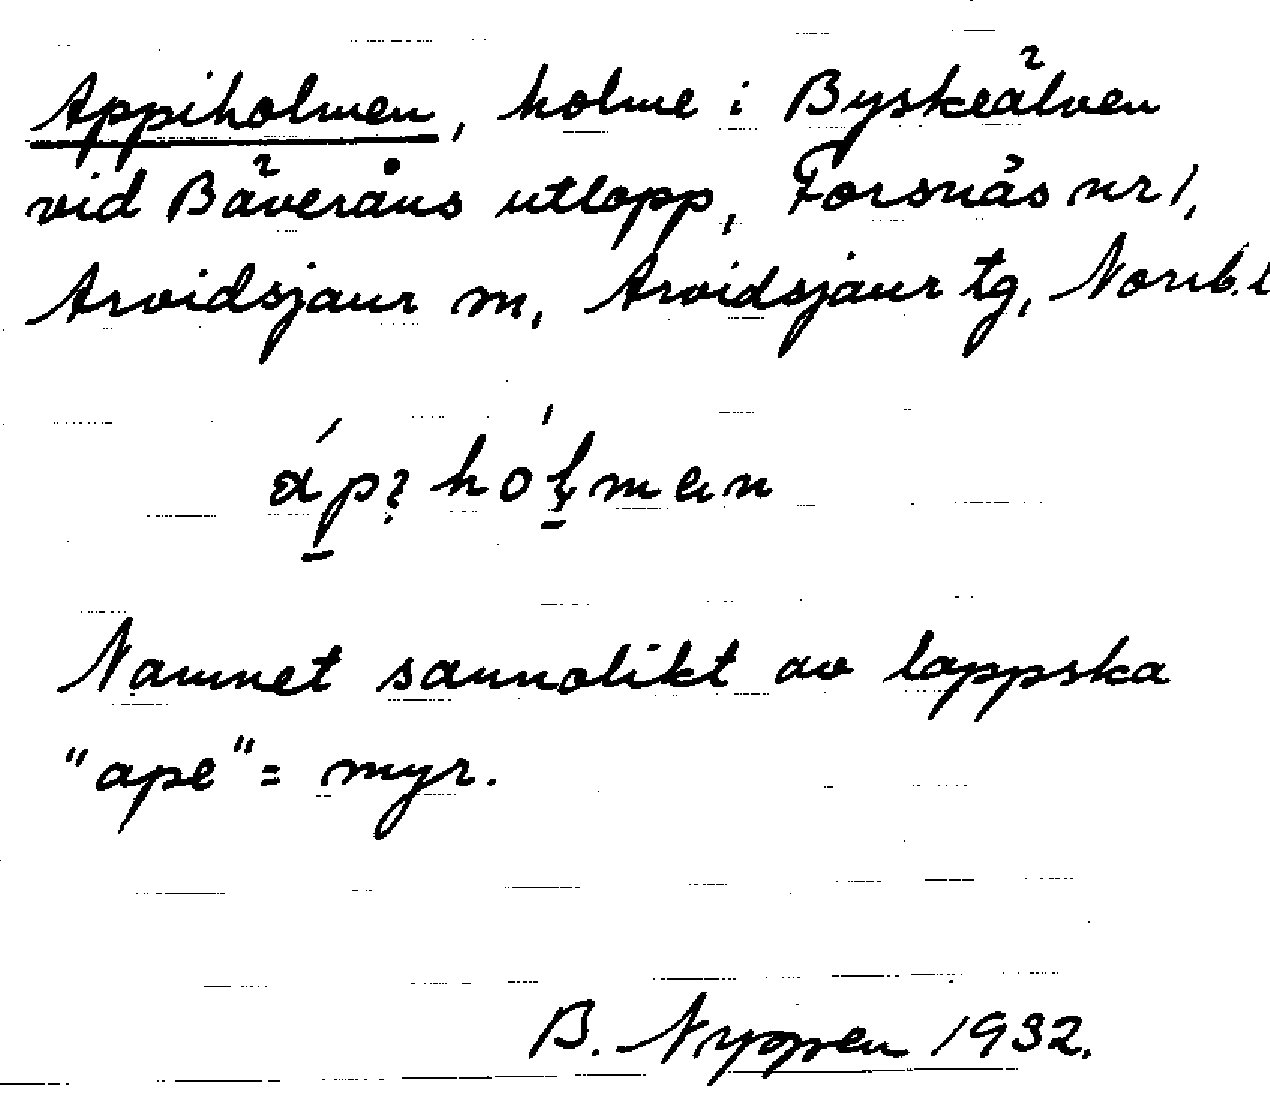 Appiholmen, holme i Byskeälven
vid Bäveråns utlopp, Forsnäs nr 1,
Arvidsjaur m, Arvidsjaur tg, Norrb. l
Namnet sannolikt av lappska
"ape" = myr.
B. Nyppen 1932.